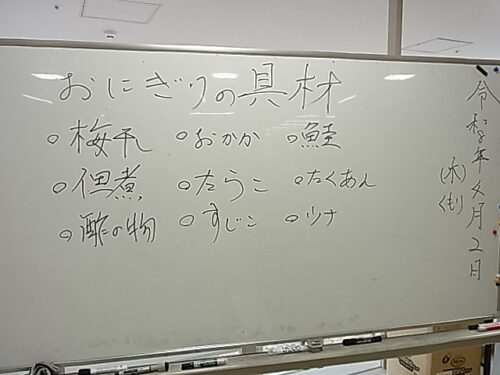 おにぎりの具材
○梅干し ○おかか ○鮭
○佃煮 ○たらこ ○たくあん
○酢の物 ○すじこ ○ツナ
令和8年4月2日
(木)
くもり